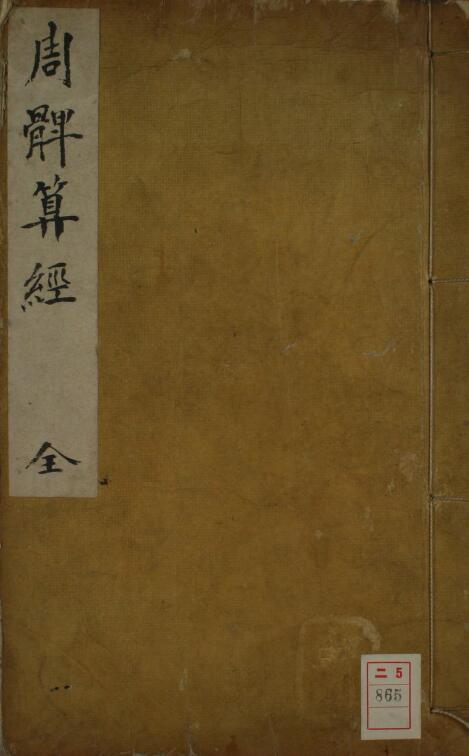 周髀算經 全
二 5
865